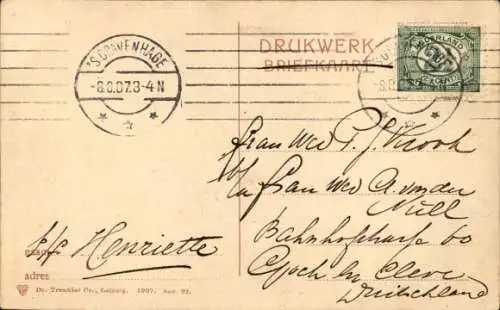 'S GRAVENHAGE
-8.0.07.3-4 N
DRUKWERK
BRIEFKAART
NEDERLAND
Frau Wed P. J.
b/a Frau Wed A. van der
Null
Bahnhofstrasse 60
p/p Henriette
Goch bei Cleve
Deutschland
adres
Dr. Trenkler Co., Leipzig. 1907.